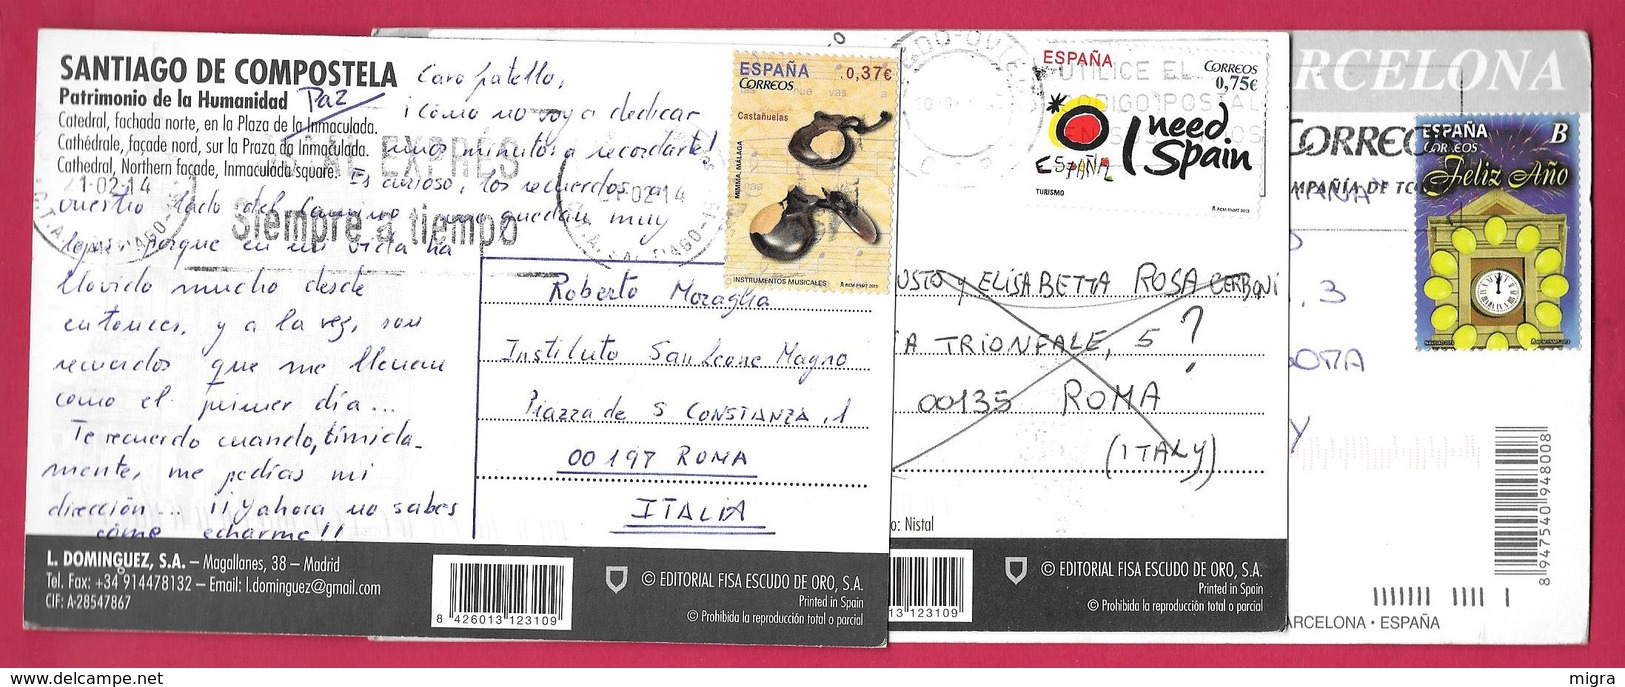 SANTIAGO DE COMPOSTELA
Patrimonio de la Humanidad
Paz
Catedral, fachada norte, en la Plaza de la Inmaculada.
Cathédrale, façade nord, sur la Praza da Inmaculada.
Cathedral, Northern façade, Inmaculada square.
Caro fratello,
¡Cómo no voy a dedicar
unos minutos a recordarte!
Es curioso, los recuerdos a
vuestro lado del Camino no quedan muy
lejos porque en mi vida ha
llovido mucho desde
entonces, y a la vez, son
recuerdos que me llenan
como el primer día...
Te recuerdo cuando, tímida-
mente, me pedías mi
dirección... ¡¡Y ahora no sabes
cómo echarme!!
POSTAL EXPRÉS
Siempre a tiempo
21-02-14
21-02-14
ESPAÑA
CORREOS
0,37€
Castañuelas
MIMMA. MÁLAGA
INSTRUMENTOS MUSICALES
RCM-FNMT 2013
Roberto Moraglia
Instituto San Leone Magno
Piazza de S CONSTANZA, 1
00197 ROMA
ITALIA
L. DOMINGUEZ, S.A. – Magallanes, 38 – Madrid
Tel. Fax: +34 914478132 – Email: l.dominguez@gmail.com
CIF: A-28547867
8 426013 123109
© EDITORIAL FISA ESCUDO DE ORO, S.A.
Printed in Spain
© Prohibida la reproducción total o parcial
UTILICE EL
CODIGO POSTAL
ESPAÑA
CORREOS
0,75€
I need
Spain
ESPAÑA
TURISMO
RCM-FNMT 2013
USTO y ELISABETTA ROSA CERBONI
IA TRIONFALE, 5 ?
00135 ROMA
(ITALY)
o: Nistal
13 123109
© EDITORIAL FISA ESCUDO DE ORO, S.A.
Printed in Spain
© Prohibida la reproducción total o parcial
RCELONA
CORREO
MPAÑÍA DE
ESPAÑA
CORREOS
B
Feliz Año
NAVIDAD 2013
, 3
Y
8 947540 948008
ARCELONA • ESPAÑA
delcampe.net
migra